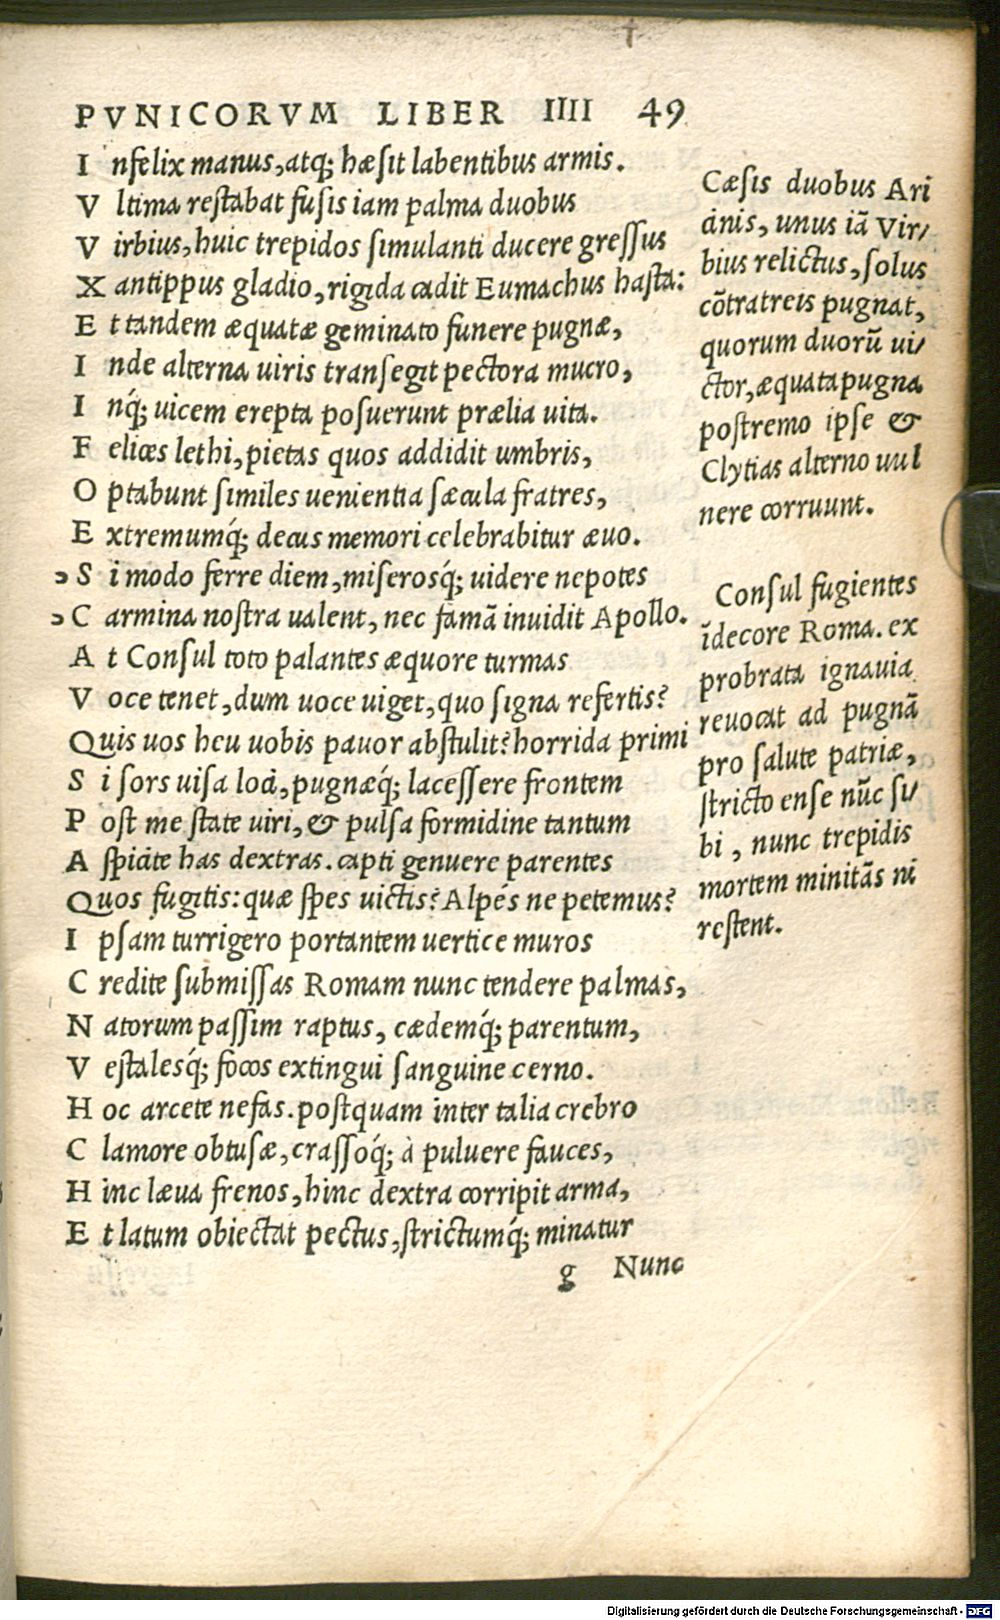 PVNICORVM LIBER IIII 49
I nfelix manus, atq; hæsit labentibus armis.
V ltima restabat fusis iam palma duobus
V irbius, huic trepidos simulanti ducere gressus
X antippus gladio, rigida cadit Eumachus hasta:
E t tandem æquatæ geminato funere pugnæ,
I nde alterna uiris transegit pectora mucro,
I nq́; uicem erepta posuerunt prælia uita.
F elices lethi, pietas quos addidit umbris,
O ptabunt similes uenientia sæcula fratres,
E xtremumq́; decus memori celebrabitur æuo.
S i modo ferre diem, miserosq́; uidere nepotes
C armina nostra ualent, nec famã inuidit Apollo.
A t Consul toto palantes æquore turmas
V oce tenet, dum uoce uiget, quo signa refertis?
Quis uos heu uobis pauor abstulit? horrida primi
S i sors uisa loci, pugnæq́; lacessere frontem
P ost me state uiri, & pulsa formidine tantum
A spicite has dextras. capti genuere parentes
Quos fugitis: quæ spes uictis? Alpés ne petemus?
I psam turrigero portantem uertice muros
C redite submissas Romam nunc tendere palmas,
N atorum passim raptus, cædemq́; parentum,
V estalesq́; focos extingui sanguine cerno.
H oc arcete nefas. postquam inter talia crebro
C lamore obtusæ, crassoq́; à puluere fauces,
H inc læua frenos, hinc dextra corripit arma,
E t latum obiectat pectus, strictumq́; minatur
g Nunc
Cæsis duobus Ari
cinis, unus iã Vir/
bius relictus, solus
cõtratreis pugnat,
quorum duorũ ui/
ctor, æquata pugna
postremo ipse &
Clytias alterno uul
nere corruunt.
Consul fugientes
ĩdecore Roma. ex
probrata ignauia
reuocat ad pugnã
pro salute patriæ,
stricto ense nũc si/
bi, nunc trepidis
mortem minitãs ni
restent.
Digitalisierung gefördert durch die Deutsche Forschungsgemeinschaft - DFG